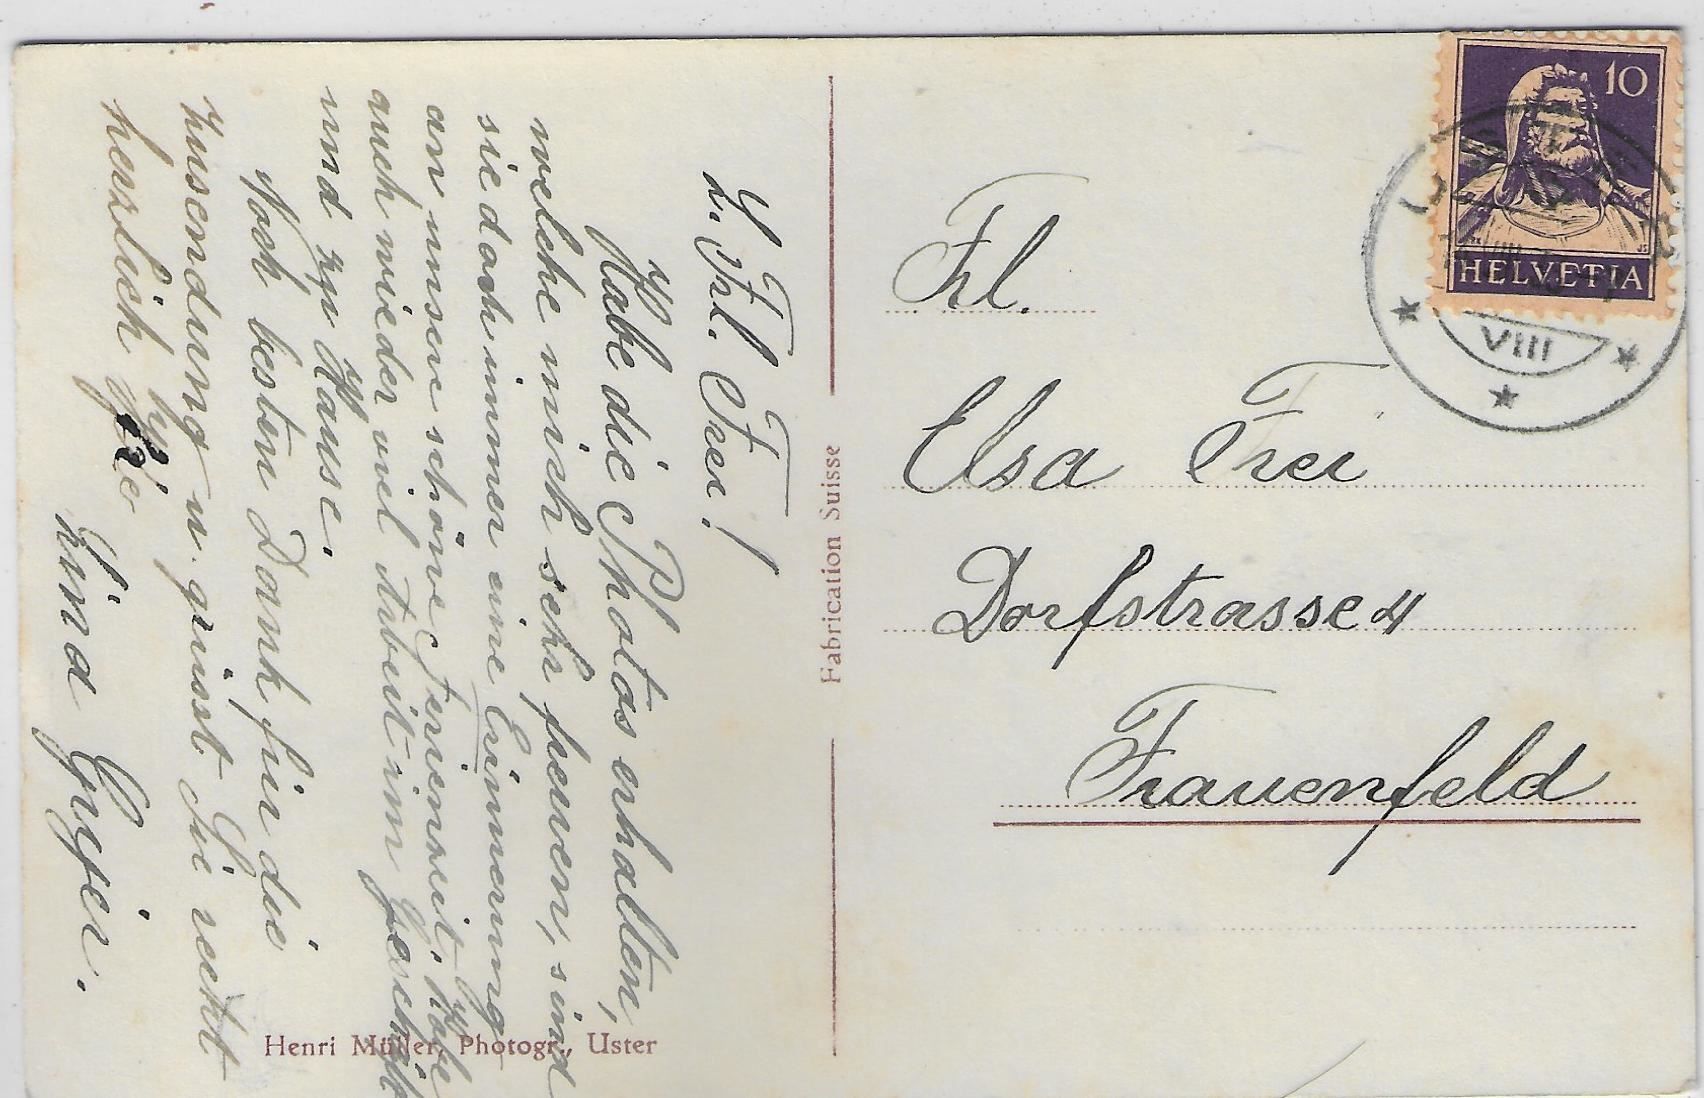 L. Frl. Frei!
Habe die Photos erhalten,
welche mich sehr freuen, sind
sie doch immer eine Erinnerung
an unsere schöne Ferienzeit. Habe
auch wieder viel Arbeit im Geschäft
und zu Hause.
Noch besten Dank für die
Zusendung u. grüsst Sie recht
herzlich
Lina Gujer.
Henri Müller, Photogr., Uster
Fabrication Suisse
10
HELVETIA
VIII
Frl.
Elsa Frei
Dorfstrasse 4
Frauenfeld